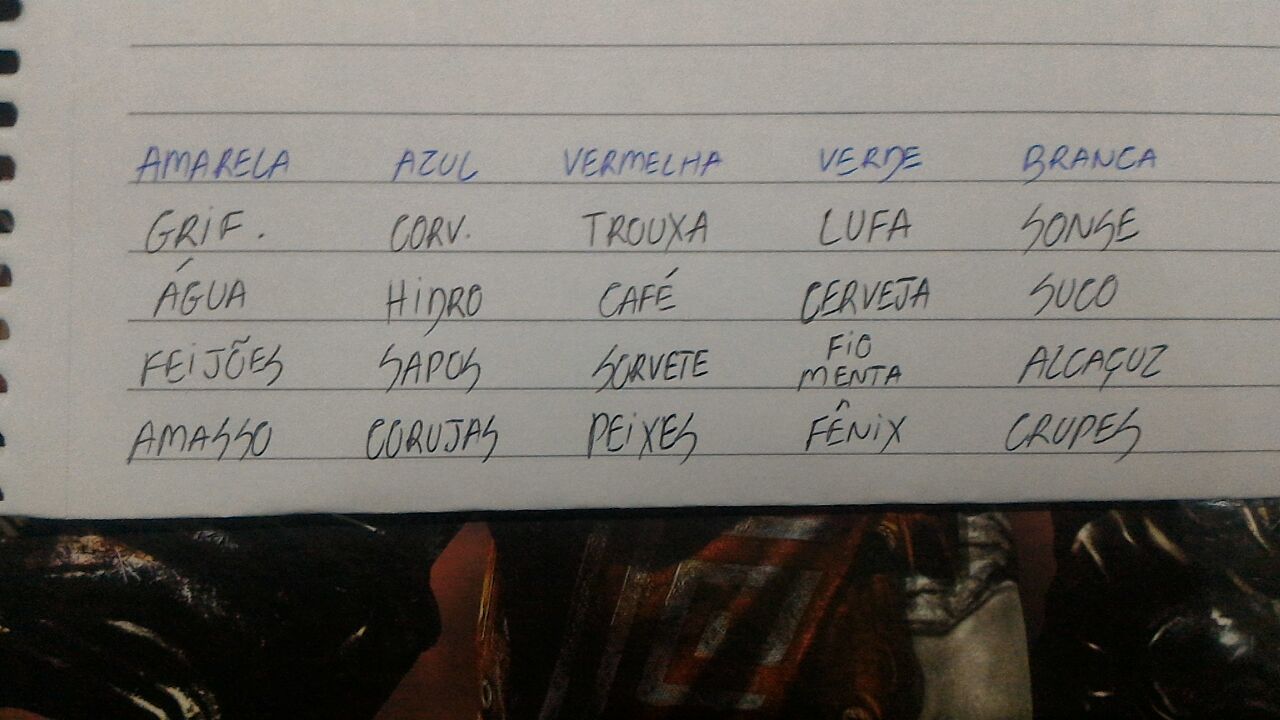 AMARELA AZUL VERMELHA VERDE BRANCA
GRIF. CORV. TROUXA LUFA SONSE
ÁGUA HIDRO CAFÉ CERVEJA SUCO
FEIJÕES SAPOS SORVETE FIO MENTA ALCAÇUZ
AMASSO CORUJAS PEIXES FÊNIX CRUPES